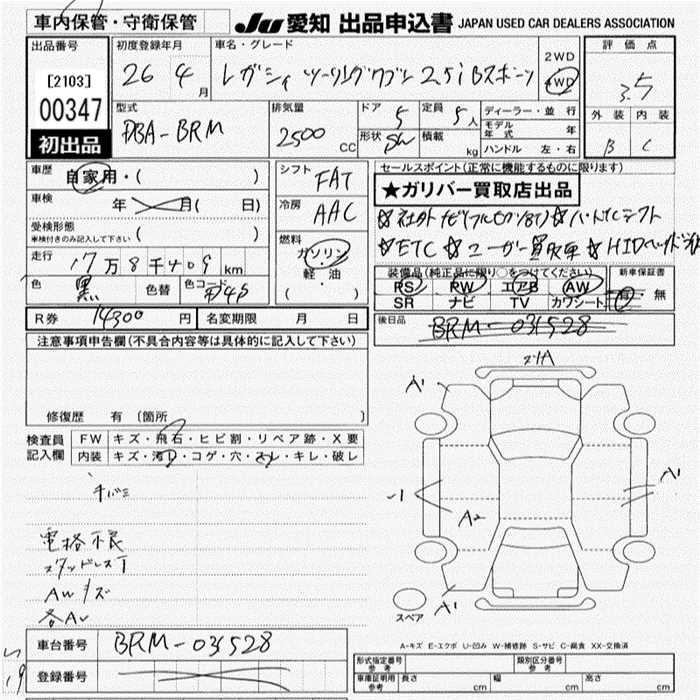 車内保管・守衛保管
JU 愛知 出品申込書 JAPAN USED CAR DEALERS ASSOCIATION
出品番号
[2103]
00347
初出品
初度登録年月
26 4 月
車名・グレード
レガシィ ツーリングワゴン 2.5i Bスポーツ
2WD
4WD
評価点
3.5
外装 内装
B C
型式
DBA-BRM
排気量
2500 CC
ドア 5
形状 SW
定員 5 人
積載 kg
ディーラー・並行
モデル年式 年
ハンドル 左・右
車歴 自家用・( )
車検 年 月( 日)
受検形態
車検付きのみ記入して下さい ( )
走行 17万8千409 km
色 黒 色替 色コード D4S
R券 14300 円 名変期限 月 日
シフト FAT
冷房 AAC
燃料
ガソリン
・
軽・油
( )
セールスポイント(正常に機能するものに限ります)
★ガリバー買取店出品
☆社外ナビ(フルセグ/Bカメ) ☆パドルシフト
☆ETC ☆ユーザー買取車 ☆HIDヘッドライト
装備品(純正品に限り○をつけてください)
RS PW エアB AW
SR ナビ TV カワシート
新車保証書
有・無
後日品
BRM-031528
注意事項申告欄(不具合内容等は具体的に記入して下さい)
修復歴 有 (箇所 )
検査員記入欄
FW キズ・飛石・ヒビ割・リペア跡・X要
内装 キズ・汚れ・コゲ・穴・スレ・キレ・破レ
電格不良
スタッドレスT
AWキズ
各A
スリA
A1
A1
A2
A1
スペア
車台番号 BRM-031528
登録番号
A-キズ E-エクボ U-凹み W-補修跡 S-サビ C-腐食 XX-交換済
形式指定番号 参考
類別区分番号 参考
車庫証明用 参考 長さ cm 幅 cm 高さ cm